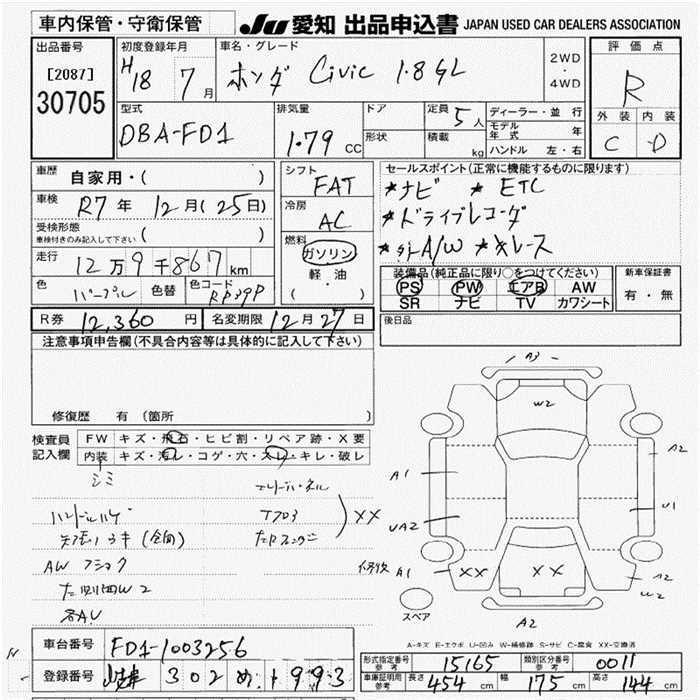 車内保管・守衛保管
JU 愛知 出品申込書 JAPAN USED CAR DEALERS ASSOCIATION
出品番号 初度登録年月 車名・グレード 2WD・4WD 評価点
[2087] H18 7月 ホンダ Civic 1.8GL R
30705
型式 排気量 ドア 定員 5人 ディーラー・並行 外装 内装
DBA-FD1 1.79 CC 形状 積載 kg モデル年式 年 C D
ハンドル 左・右
車歴 自家用・( ) シフト FAT セールスポイント(正常に機能するものに限ります)
★ナビ ★ETC
車検 R7年 12月(25日) 冷房 AC ★ドライブレコーダ
受検形態 ( )
車検付きのみ記入して下さい
燃料 ガソリン 軽・油 ・( )
A/W
走行 12万9千867km 装備品(純正品に限り○をつけてください) 新車保証書
色 パープル 色替 色コード PS PW エアB AW 有・無
SR ナビ TV カワシート
R券 12,360円 名変期限 12月27日 後日品
注意事項申告欄(不具合内容等は具体的に記入して下さい)
修復歴 有 (箇所
検査員記入欄 FW キズ・飛石・ヒビ割・リペア跡・X要
内装 キズ・汚レ・コゲ・穴・スレ・キレ・破レ
シミ
ハンドルハゲ
XX
AW
W2
A3
W2
A2
A1
U1
UA2
A1
XX
XX
A2
W2
スペア
A2
A-キズ E-エクボ U-凹ミ W-補修跡 S-サビ C-腐食 XX-交換済
車台番号 FD1-1003256
登録番号 302 め 1993
形式指定番号 参考 15165 類別区分番号 参考 0011
車庫証明用 参考 長さ 454 cm 幅 175 cm 高さ 144 cm